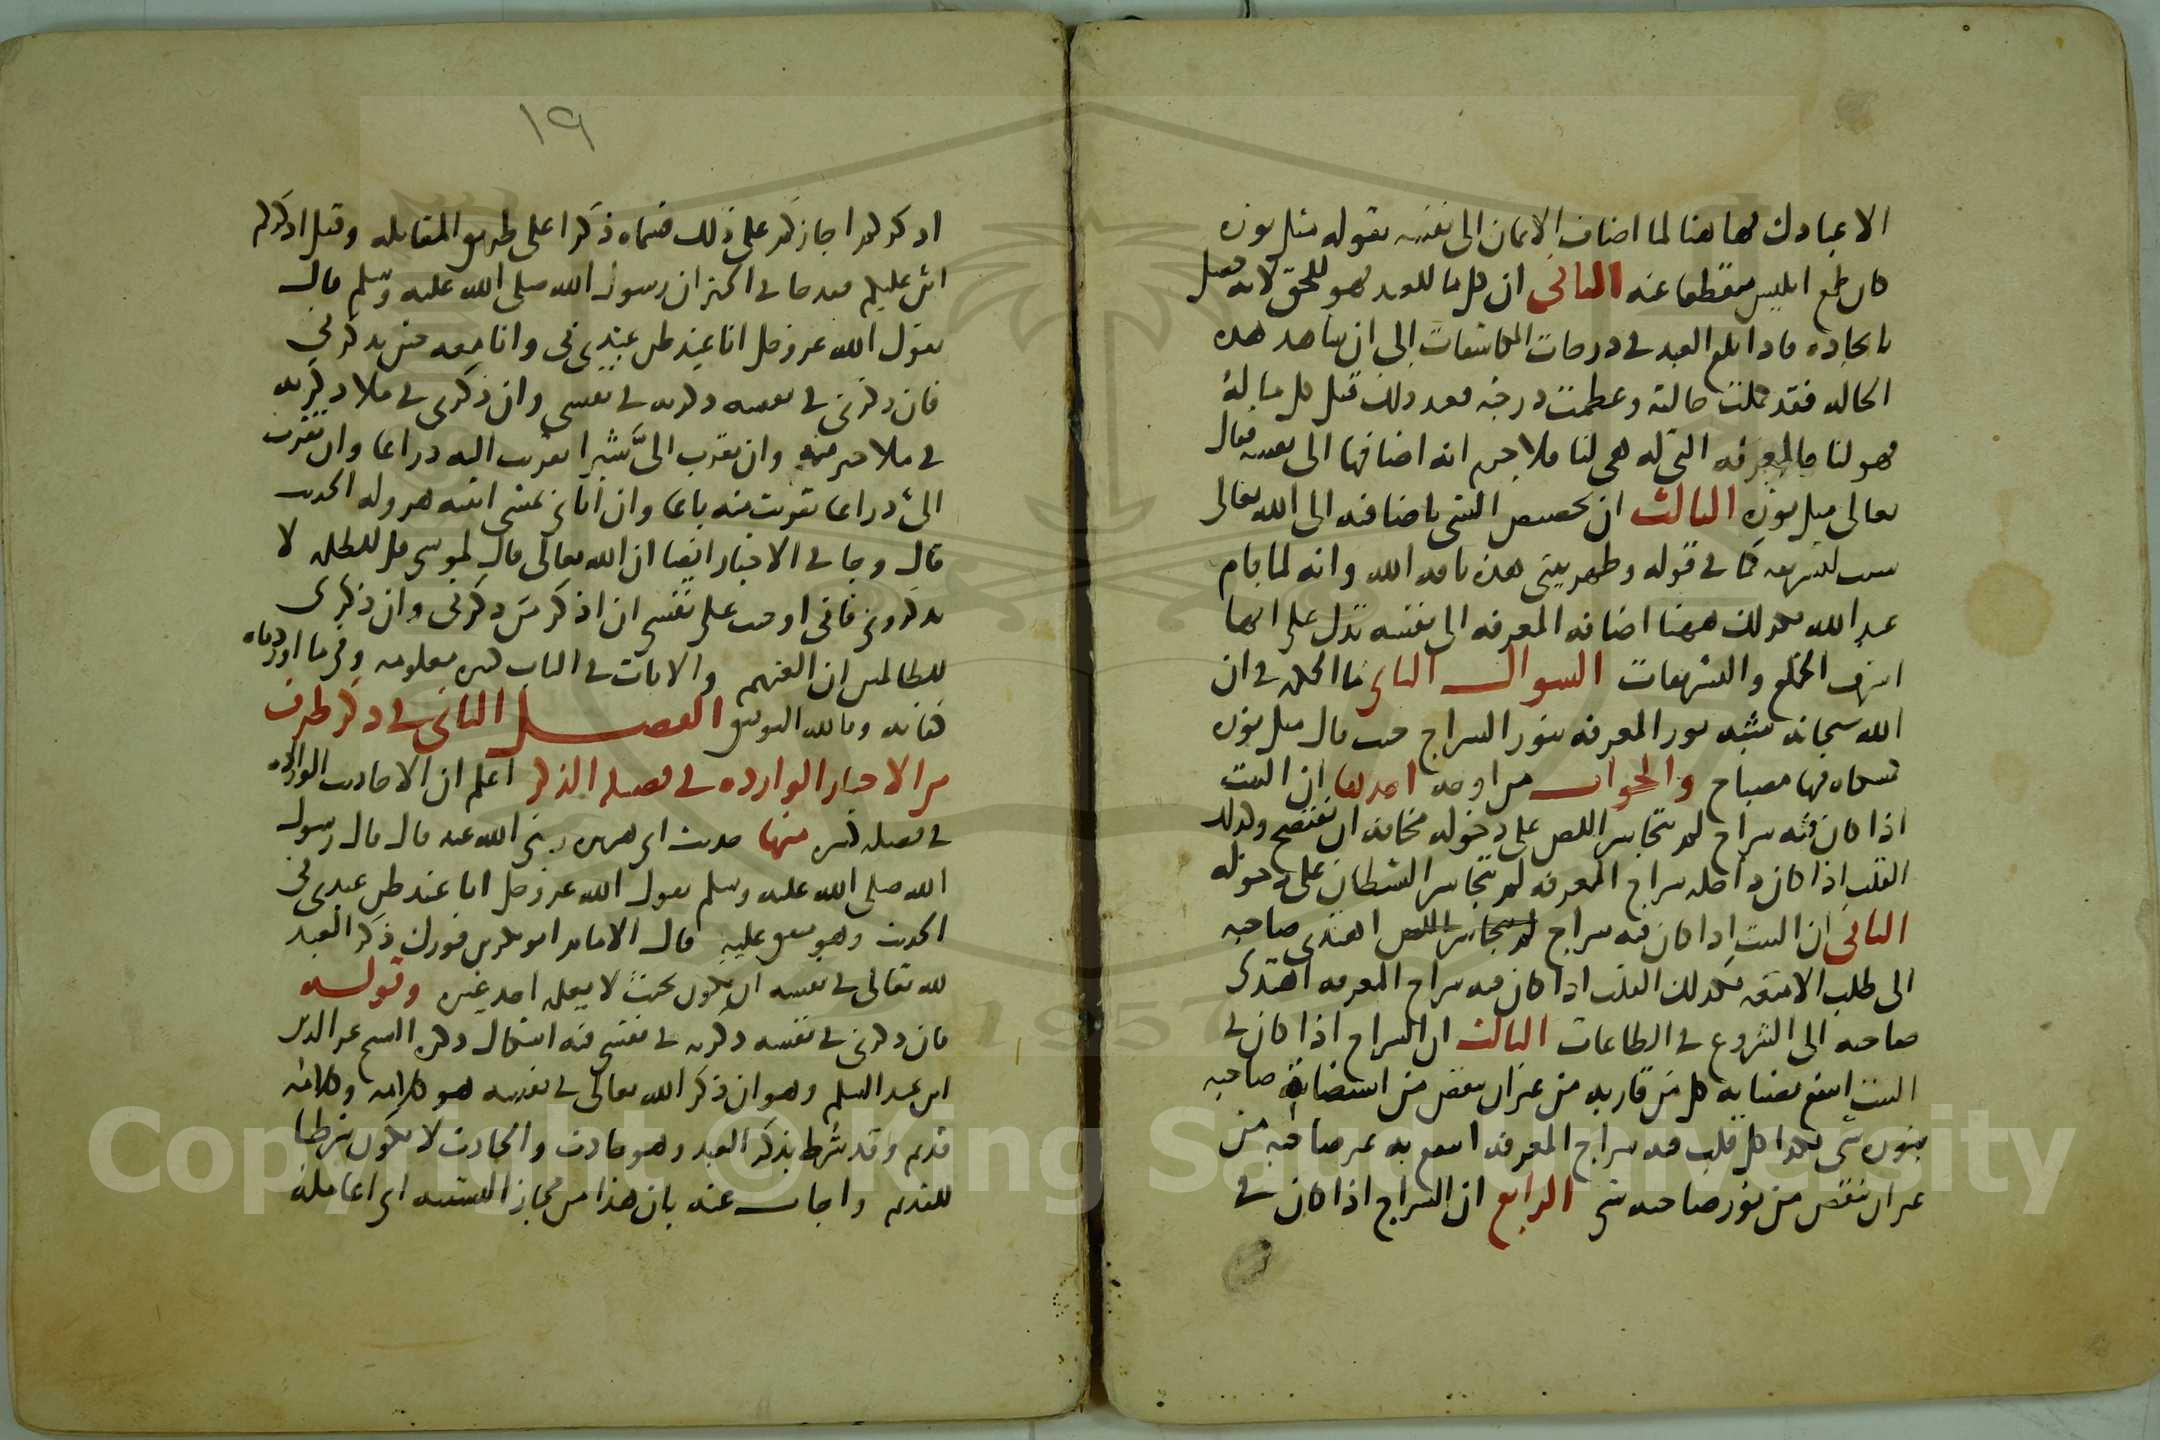 الا عبادك فهاهنا لما اضاف الايمان الى نفسه بقوله مثل نوره
كان طمع ابليس منقطعا عنه الثاني ان كل ما للعبد فهو للحق لانه حصل
بايجاده فاذا بلغ العبد في درجات المكاشفات الى ان يشاهد هذه
الحاله فقد كملت حالته وعظمت درجته فعند ذلك قيل كل ما له
فهو لنا فالمعرفه التي له هي لنا فلا جرم انه اضافها الى نفسه فقال
تعالى مثل نوره الثالث ان تخصيص الشي باضافته الى الله تعالى
سبب لتشريفه كما في قوله وطهر بيتي هذه ناقه الله وانه لما قام
عبد الله فكذلك ههنا اضافه المعرفه الى نفسه تدل على انها
اشرف الخلع والتشريفات السوال الثاني ما الحكمه في ان
الله سبحانه شبه نور المعرفه بنور السراج حيث قال مثل نوره
كمشكاه فيها مصباح والجواب من اوجه احدها ان البيت
اذا كان فيه سراج لم يتجاسر اللص على دخوله مخافه ان يفتضح وكذلك
القلب اذا كان داخله سراج المعرفه لم يتجاسر الشيطان على دخوله
الثاني ان البيت اذا كان فيه سراج لم يتجاسر اللص اهتدى صاحبه
الى طلب الامتعه فكذلك القلب اذا كان فيه سراج المعرفه اهتدى
صاحبه الى الشروع في الطاعات الثالث ان السراج اذا كان في
البيت انتفع بضيائه كل من قاربه من غير ان ينقص من استضاءة صاحبه
بنوره شي فكذا كل قلب فيه سراج المعرفه انتفع به غير صاحبه من
غير ان ينقص من نور صاحبه شي الرابع ان السراج اذا كان في
١٩
اذكركم اجازكم على ذلك فسماه ذكرا على طريق المقابله وقيل اذكركم
اثن عليكم فقد جا في الخبر ان رسول الله صلى الله عليه وسلم قال
يقول الله عز وجل انا عند ظن عبدي بي وانا معه حين يذكرني
فان ذكرني في نفسه ذكرته في نفسي وان ذكرني في ملا ذكرته
في ملا خير منهم وان تقرب الىّ شبرا تقربت اليه ذراعا وان تقرب
الىّ ذراعا تقربت منه باعا وان اتاني يمشي اتيته هروله الحديث
قال وجا في الاخبار ايضا ان الله تعالى قال لموسى قل للظلمه لا
يذكروني فاني اوجبت على نفسي ان اذكر من ذكرني وان ذكري
للظالمين ان العنهم والايات في الباب كثيره معلومه وفي ما اوردناه
كفايه وبالله التوفيق الفصل الثاني في ذكر طرف
من الاخبار الوارده في فضيله الذكر اعلم ان الاحاديث الوارده
في فضيله كثيره منها حديث ابي هريره رضي الله عنه قال قال رسول
الله صلى الله عليه وسلم يقول الله عز وجل انا عند ظن عبدي بي
الحديث وهو متفق عليه قال الامام ابو بكر بن فورك ذكر العبد
لله تعالى في نفسه ان يكون بحيث لا يعلمه احد غيره وقوله
فان ذكرني في نفسه ذكرته في نفسي فيه اشكال ذكره الشيخ عز الدين
ابن عبد السلام وهو ان ذكر الله تعالى في نفسه هو كلامه وكلامه
قديم وقد شرط بذكر العبد وهو حادث والحادث لا يكون شرطا
للقديم واجاب عنه بان هذا من مجاز التشبيه اي اعامله